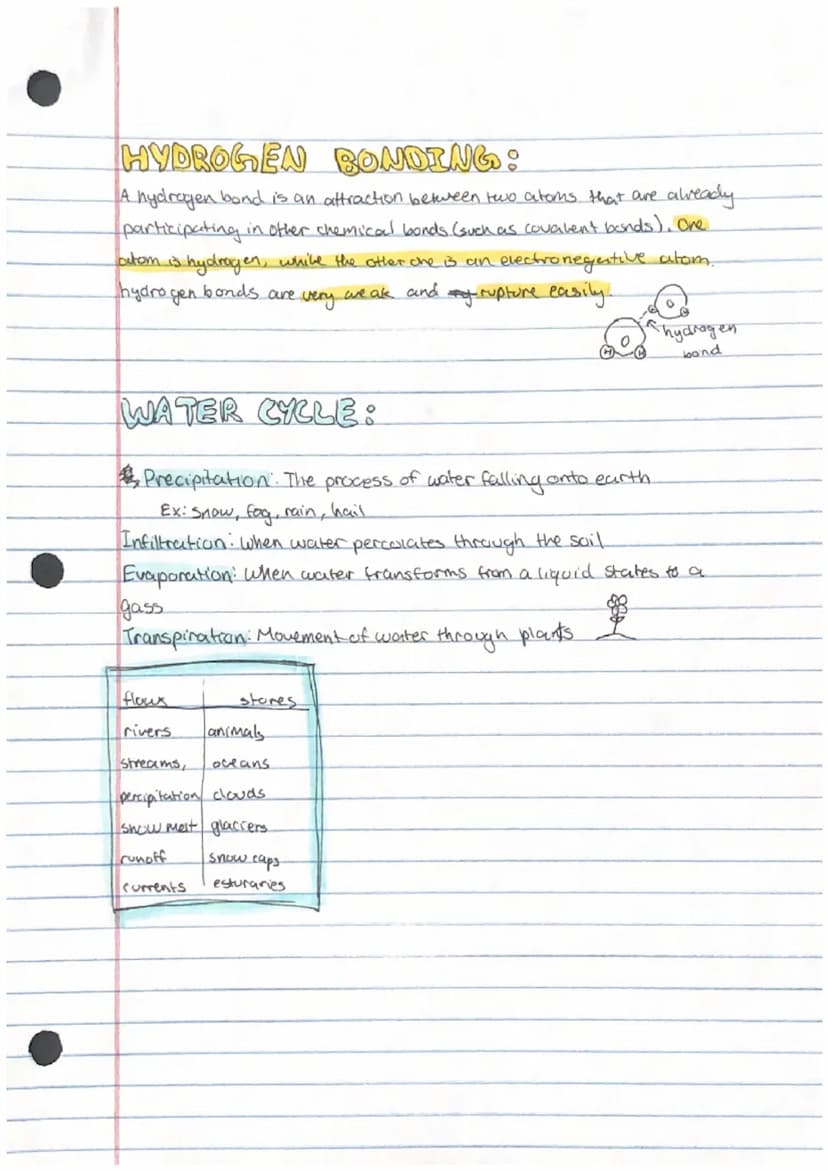 HYDROGEN BONDING:
A hydrogen bond is an attraction between two atoms that are already
participating in other chemical bonds (such as covalent bonds). One
atom is hydrogen, while the other one is an electronegative atom.
hydrogen bonds are very weak and rupture easily.
O
O
H H
hydrogen
bond
WATER CYCLE:
Precipitation: The process of water falling onto earth
Ex: snow, fog, rain, hail
Infiltration: when water percolates through the soil
Evaporation: when water transforms from a liquid states to a
gass
Transpiration: Movement of water through plants
flows stores
rivers animals
streams, oceans
percipitation clouds
snow melt glaciers
runoff snow caps
currents esturaries